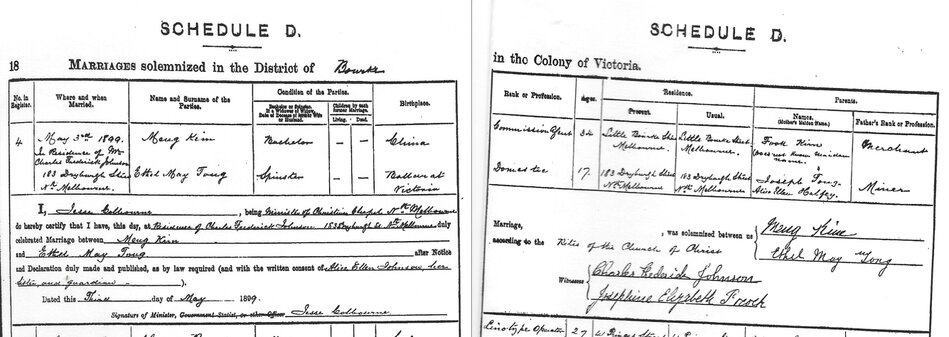 SCHEDULE D.
18 MARRIAGES solemnized in the District of Bourke
No. in Register.
Where and when Married.
Name and Surname of the Parties.
Condition of the Parties.
Bachelor or Spinster.
Children by each former Marriage.
Living. Dead.
Birthplace.
4
May 3rd 1899.
Residence of Mr
Charles Frederick Johnson
183 Dryburgh Street
Nth Melbourne.
Meng Kim
Bachelor
—
—
China
Ethel May Tong
Spinster
—
—
Ballarat
Victoria
I, Jesse Colbourne, being Minister of Christian Chapel Nth Melbourne
do hereby certify that I have, this day, at Residence of Charles Frederick Johnson 183 Dryburgh St Nth Melbourne duly
celebrated Marriage between Meng Kim
and Ethel May Tong after Notice
and Declaration duly made and published, as by law required (and with the written consent of Alice Ellen Johnson her
and guardian).
Dated this Third day of May 1899.
Signature of Minister, Government Statist, or other Officer Jesse Colbourne
SCHEDULE D.
in the Colony of Victoria.
Rank or Profession.
Ages.
Residence.
Present. Usual.
Parents.
Names.
(Mother's Maiden Name.)
Father's Rank or Profession.
Commission Agent
34
Little Bourke Street
Melbourne.
Little Bourke Street
Melbourne.
Kim
Does not know maiden
name.
Merchant
Domestic
17.
183 Dryburgh Street
Nth Melbourne
183 Dryburgh Street
Nth Melbourne
Joseph Tong
Alice Ellen
Miner
Marriage, , was solemnized between us Meng Kim
according to the Rites of the Church of Christ Ethel May Tong
Witnesses Charles Frederick Johnson
Josephine Elizabeth
Linotype Operator 27